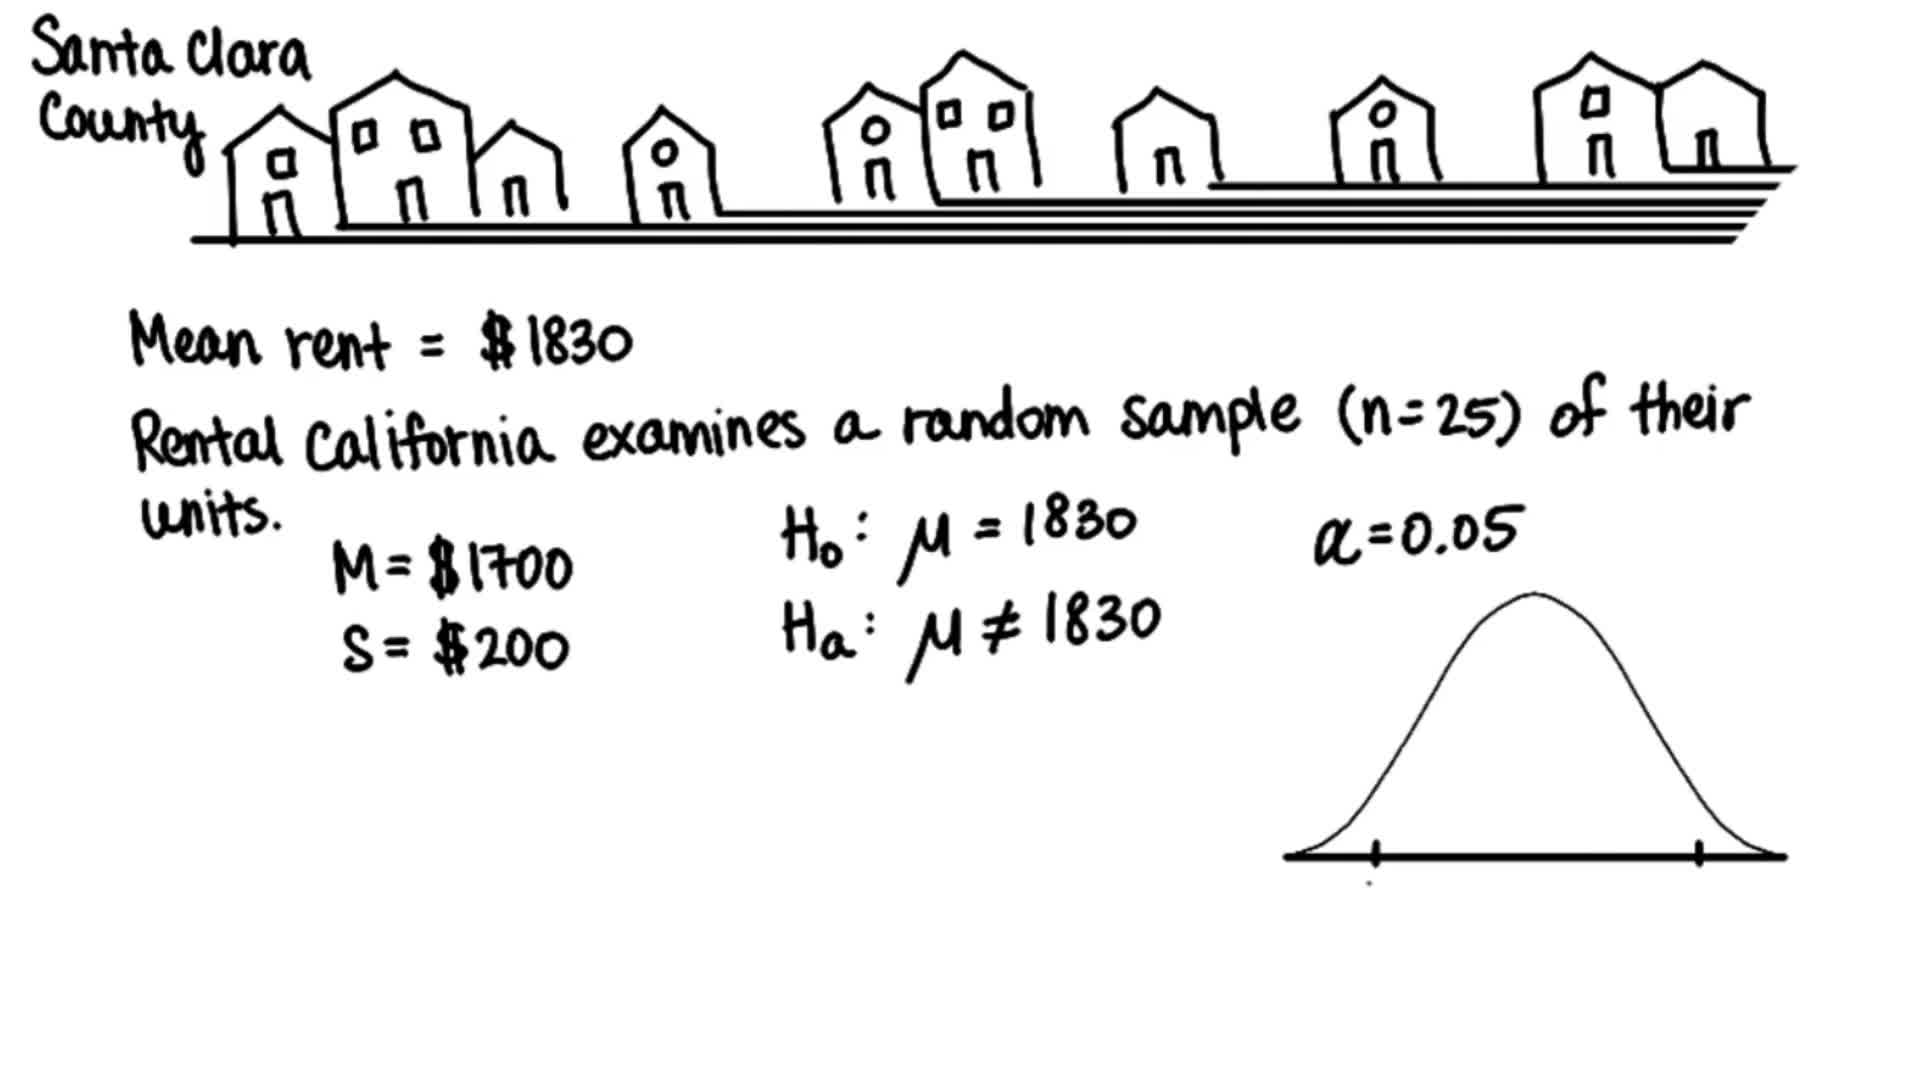 Santa Clara
County
Mean rent = $1830
Rental California examines a random sample (n=25) of their
units.
M = $1700
S = $200
H₀: μ = 1830
Hₐ: μ ≠ 1830
α = 0.05